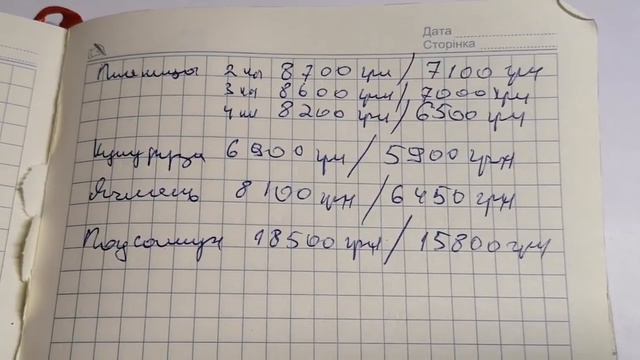 Дата
Сторінка
Пшеница 2 кл 8700 грн / 7100 грн
3 кл 8600 грн / 7000 грн
4 кл 8200 грн / 6500 грн
Кукурудза 6900 грн / 5900 грн
Ячмень 8100 грн / 6450 грн
Подсолнух 18500 грн / 15800 грн